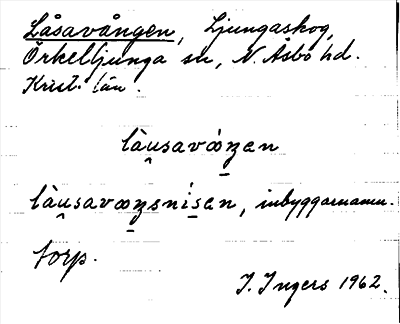 Låsavången, Ljungaskog,
Örkelljunga sn, N. Åsbo hd.
Krist. län.
làu̯saváŋ̲en
làu̯savaŋ̲snìs̲en, inbyggarnamn.
torp.
I. Ingers 1962.